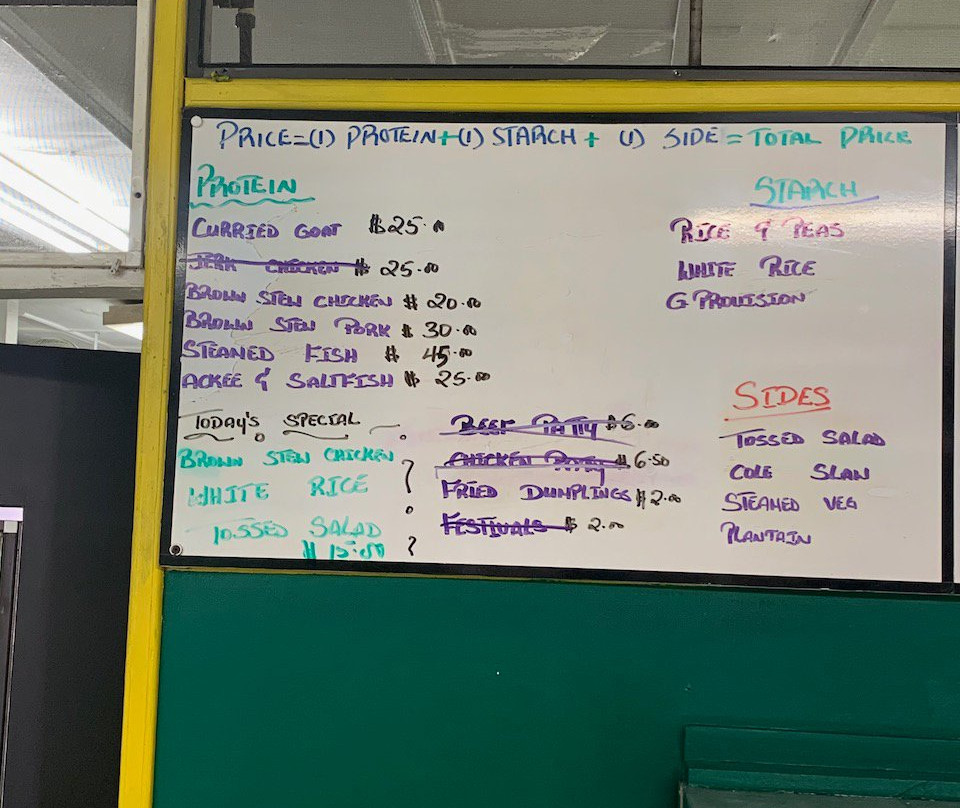 PRICE=(1) PROTEIN+(1) STARCH + (1) SIDE = TOTAL PRICE
PROTEIN
CURRIED GOAT $25.00
JERK CHICKEN $ 25.00
BROWN STEW CHICKEN $ 20.00
BROWN STEW PORK $ 30.00
STEAMED FISH $ 45.00
ACKEE & SALTFISH $ 25.00
STARCH
RICE & PEAS
WHITE RICE
G PROVISION
TODAY'S SPECIAL
BROWN STEW CHICKEN
WHITE RICE
TOSSED SALAD
$ 15.00
BEEF PATTY $6.00
CHICKEN PATTY $ 6.50
FRIED DUMPLINGS $2.00
FESTIVALS $ 2.00
SIDES
TOSSED SALAD
COLE SLAW
STEAMED VEG
PLANTAIN